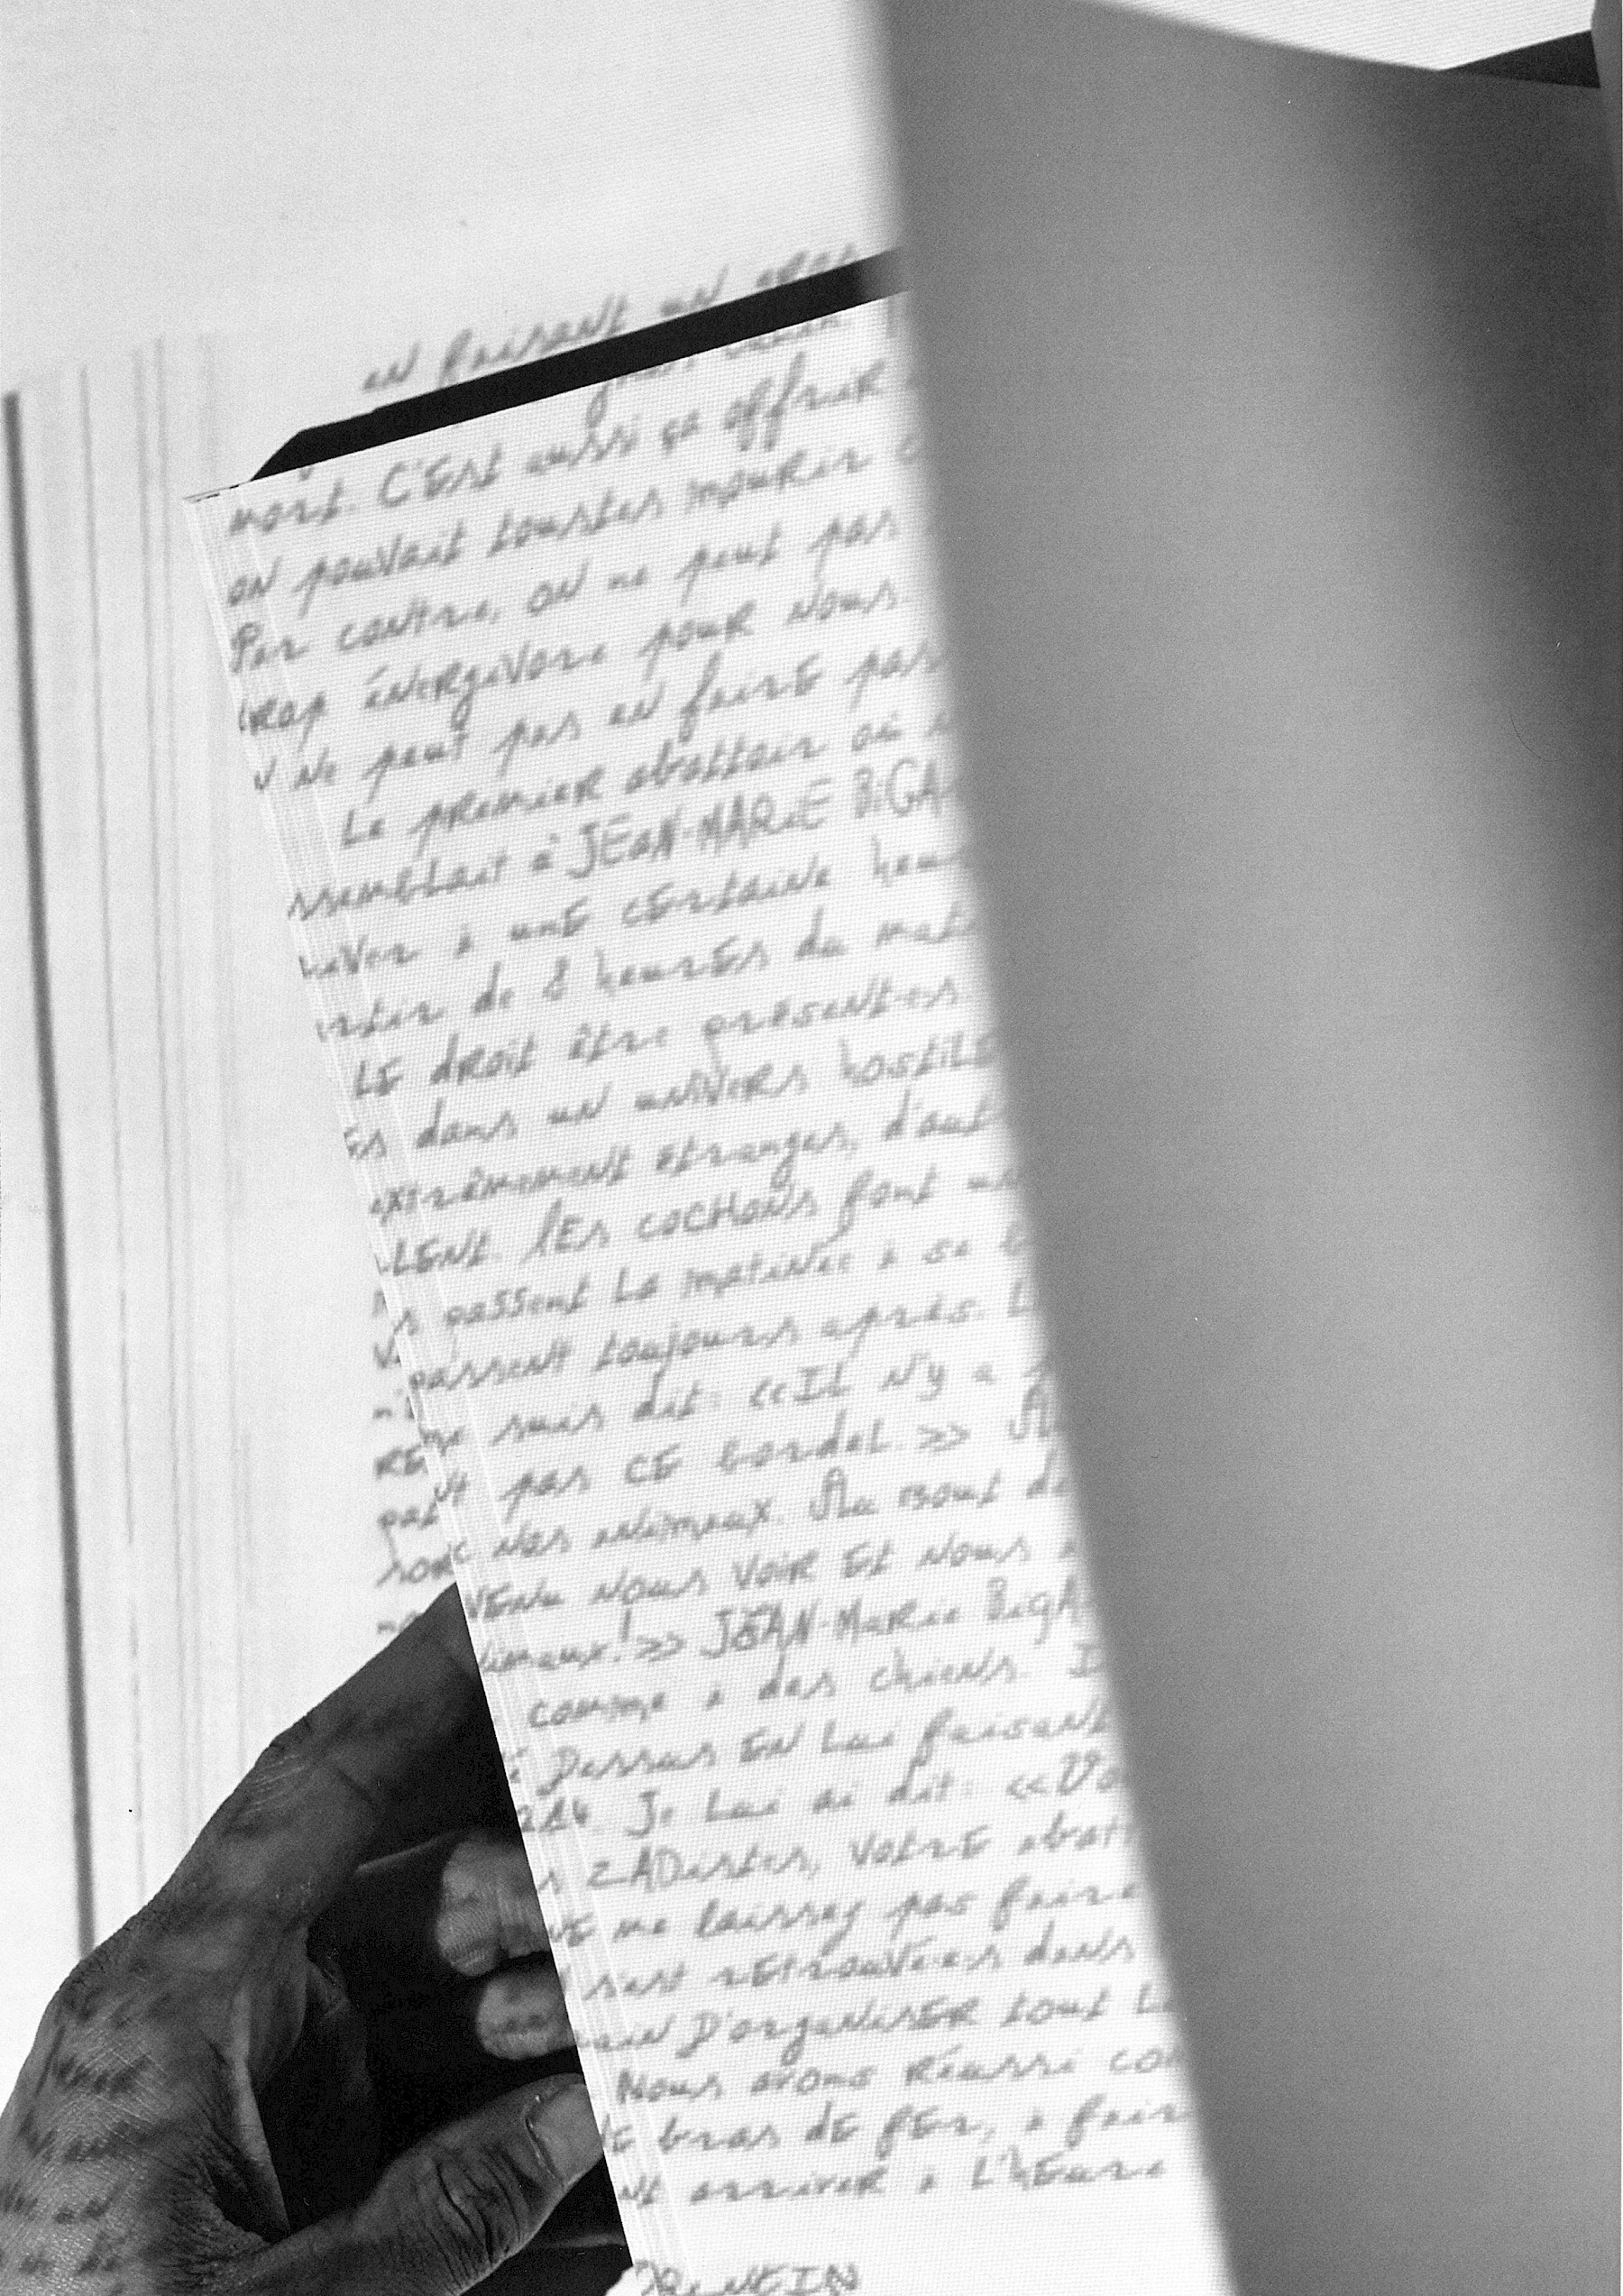 en faisant un
mort. C'Est aussi ça offrir
on pouvait toustes mourir
Par contre, on ne peut pas
trop énergivore pour nous.
ne peut pas en faire pas
Le premier abattoir où
ssemblait à JEAN-MARIE BIGA
river à une certaine heu
rtir de 8 heures du mati
LE droit être présent·es.
es dans un univers hostile
extrêmement étranges, d'aut
LENT. lEs cochons font un
s passent la matinée à se
passent toujours après. L
me suis dit: <<IL n'y a
pas CE bordel.>> A
nos animaux. Au bout de
VENU nous voir Et nous
nimaux!>> JEAN-Marie BigA
comme à des chiens. I
Dessus EN Lui faisant
Je Lui ai dit: <<Vo
s ZADistes, votre abatt
NE me laissez pas faire
s'est retrouvé·es dans
D'organiser tout L
Nous avons réussi co
de bras de fer, à fair
nt arriver à L'hEure